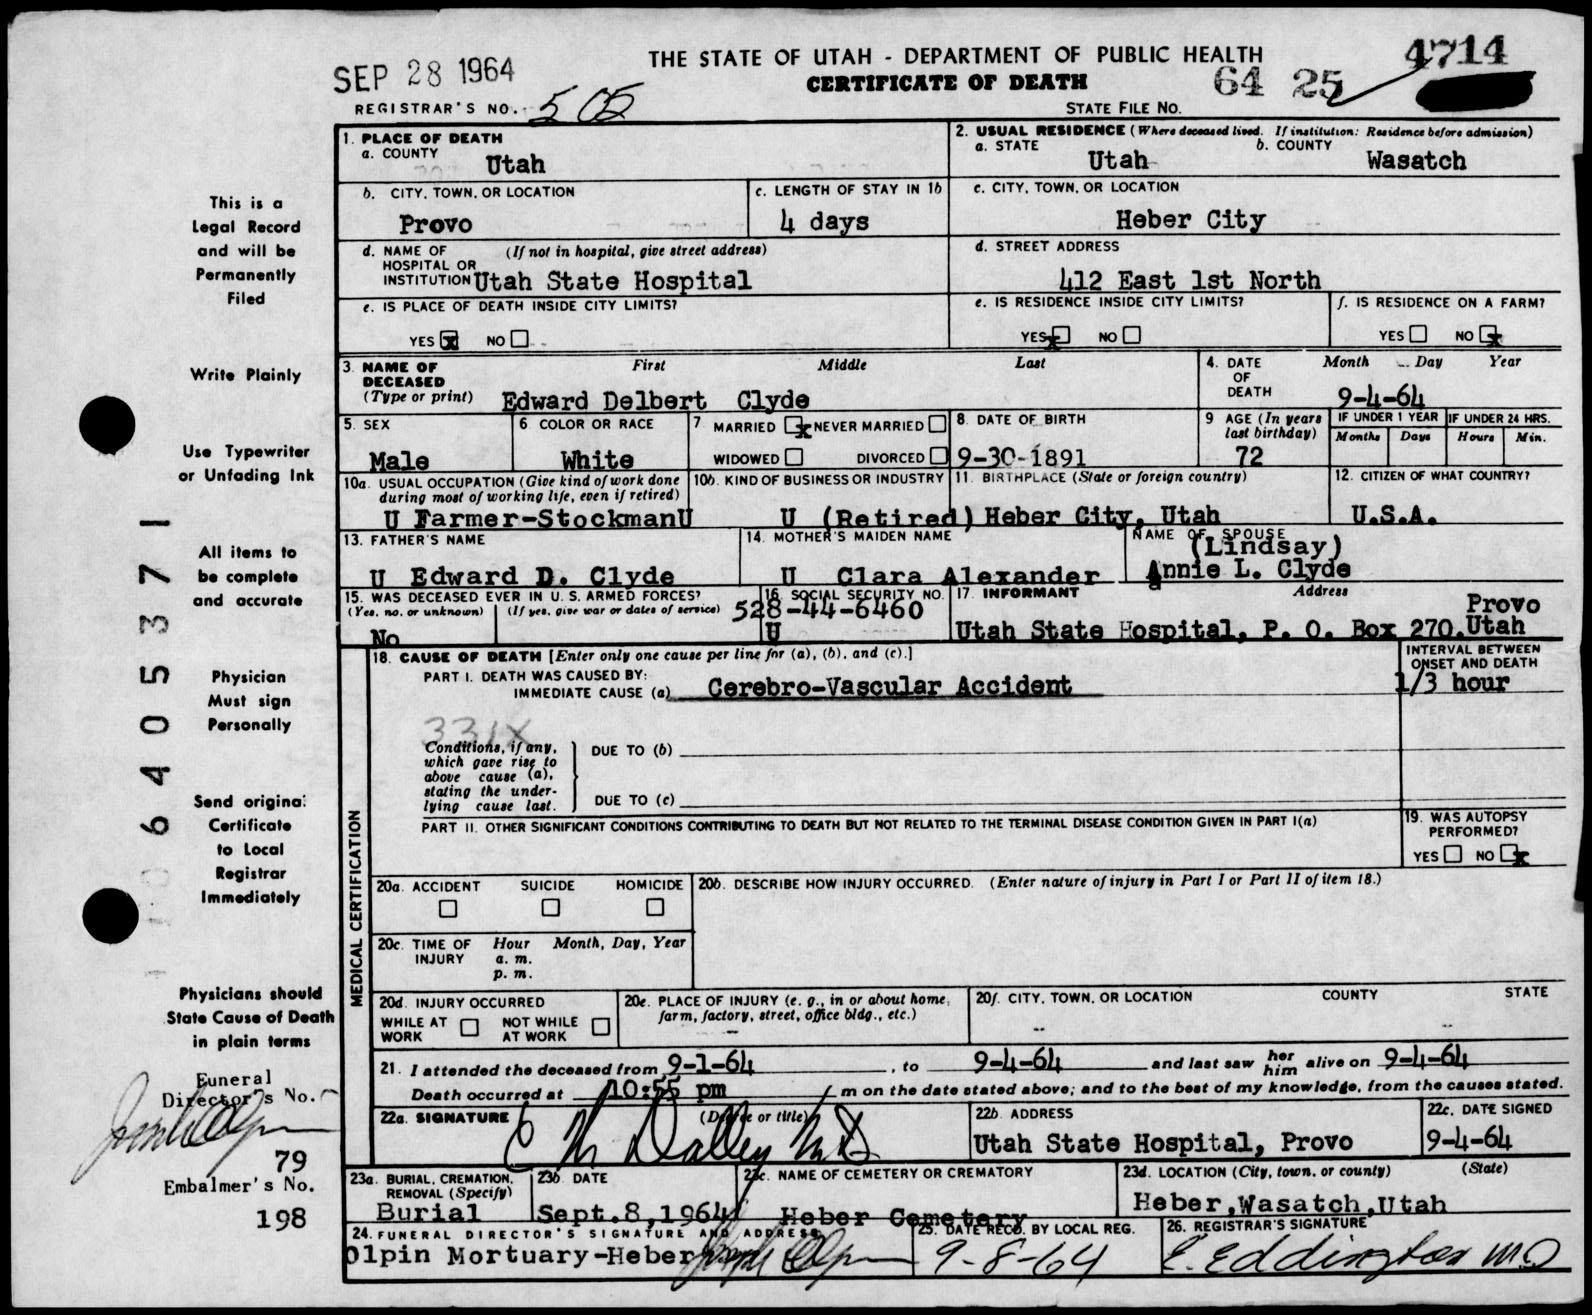 SEP 28 1964
THE STATE OF UTAH - DEPARTMENT OF PUBLIC HEALTH
CERTIFICATE OF DEATH
64 25 4714
REGISTRAR'S NO. 505
STATE FILE NO.
1. PLACE OF DEATH
a. COUNTY Utah
2. USUAL RESIDENCE (Where deceased lived. If institution: Residence before admission)
a. STATE Utah b. COUNTY Wasatch
b. CITY, TOWN, OR LOCATION Provo
c. LENGTH OF STAY IN 1b 4 days
c. CITY, TOWN, OR LOCATION Heber City
d. NAME OF HOSPITAL OR INSTITUTION (If not in hospital, give street address) Utah State Hospital
d. STREET ADDRESS 412 East 1st North
e. IS PLACE OF DEATH INSIDE CITY LIMITS?
YES x NO
e. IS RESIDENCE INSIDE CITY LIMITS?
YES x NO
f. IS RESIDENCE ON A FARM?
YES NO x
3. NAME OF DECEASED (Type or print) First Middle Last
Edward Delbert Clyde
4. DATE OF DEATH Month Day Year
9-4-64
5. SEX Male
6 COLOR OR RACE White
7 MARRIED x NEVER MARRIED
WIDOWED DIVORCED
8. DATE OF BIRTH 9-30-1891
9 AGE (In years last birthday) 72
IF UNDER 1 YEAR Months Days
IF UNDER 24 HRS. Hours Min.
10a. USUAL OCCUPATION (Give kind of work done during most of working life, even if retired)
U Farmer-StockmanU
10b. KIND OF BUSINESS OR INDUSTRY
U (Retired)
11. BIRTHPLACE (State or foreign country)
Heber City, Utah
12. CITIZEN OF WHAT COUNTRY?
U.S.A.
13. FATHER'S NAME
U Edward D. Clyde
14. MOTHER'S MAIDEN NAME
U Clara Alexander
NAME OF SPOUSE
(Lindsay)
Annie L. Clyde
15. WAS DECEASED EVER IN U.S. ARMED FORCES?
(Yes, no, or unknown) (If yes, give war or dates of service)
No
16. SOCIAL SECURITY NO.
528-44-6460
U
17. INFORMANT Address
Utah State Hospital, P. O. Box 270. Provo Utah
18. CAUSE OF DEATH [Enter only one cause per line for (a), (b), and (c).]
INTERVAL BETWEEN ONSET AND DEATH
PART I. DEATH WAS CAUSED BY:
IMMEDIATE CAUSE (a) Cerebro-Vascular Accident
1/3 hour
331X
Conditions, if any, which gave rise to above cause (a), stating the under-lying cause last.
DUE TO (b)
DUE TO (c)
PART II. OTHER SIGNIFICANT CONDITIONS CONTRIBUTING TO DEATH BUT NOT RELATED TO THE TERMINAL DISEASE CONDITION GIVEN IN PART I(a)
19. WAS AUTOPSY PERFORMED?
YES NO x
MEDICAL CERTIFICATION
20a. ACCIDENT SUICIDE HOMICIDE
20b. DESCRIBE HOW INJURY OCCURRED. (Enter nature of injury in Part I or Part II of item 18.)
20c. TIME OF INJURY Hour Month, Day, Year
a. m.
p. m.
20d. INJURY OCCURRED
WHILE AT WORK NOT WHILE AT WORK
20e. PLACE OF INJURY (e. g., in or about home, farm, factory, street, office bldg., etc.)
20f. CITY, TOWN, OR LOCATION COUNTY STATE
21. I attended the deceased from 9-1-64, to 9-4-64 and last saw her him alive on 9-4-64
Death occurred at 10:55 pm m on the date stated above; and to the best of my knowledge, from the causes stated.
22a. SIGNATURE (Degree or title)
C M Dalley MD
22b. ADDRESS
Utah State Hospital, Provo
22c. DATE SIGNED
9-4-64
23a. BURIAL, CREMATION, REMOVAL (Specify)
Burial
23b. DATE
Sept.8,1964
23c. NAME OF CEMETERY OR CREMATORY
Heber Cemetery
23d. LOCATION (City, town, or county) (State)
Heber,Wasatch,Utah
24. FUNERAL DIRECTOR'S SIGNATURE AND ADDRESS
Olpin Mortuary-Heber
25. DATE RECD. BY LOCAL REG.
9-8-64
26. REGISTRAR'S SIGNATURE
Eddington M.D.
This is a
Legal Record
and will be
Permanently
Filed
Write Plainly
Use Typewriter
or Unfading Ink
All items to
be complete
and accurate
Physician
Must sign
Personally
Send original
Certificate
to Local
Registrar
Immediately
Physicians should
State Cause of Death
in plain terms
Funeral
Director's No.
79
Embalmer's No.
198
6405371